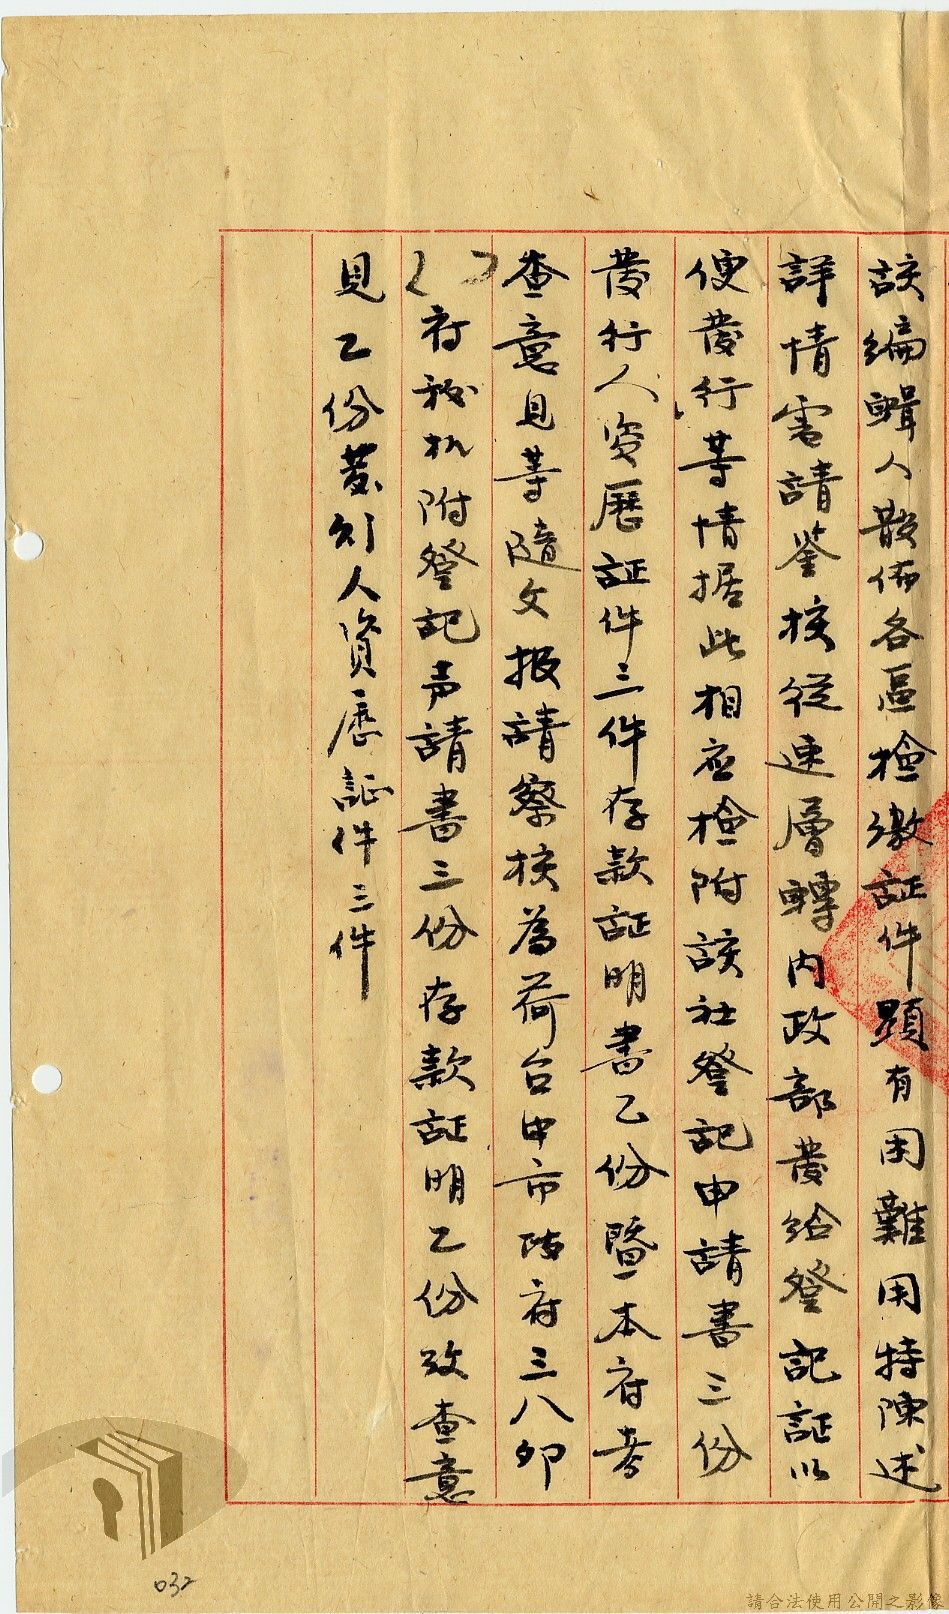 該編輯人散佈各區檢繳証件顕有困難用特陳述
詳情電請鉴核從速層轉內政部發給登記証以
便發行等情据此相应檢附該社登記申請書三份
發行人资歷証件三件存款証明書乙份暨本府考
查意見等隨文报請察核為荷台中市政府三八卯
府秘机附登記声請書三份存款証明乙份攷查意
見乙份發行人資歷証件三件
032
請合法使用公開之影像